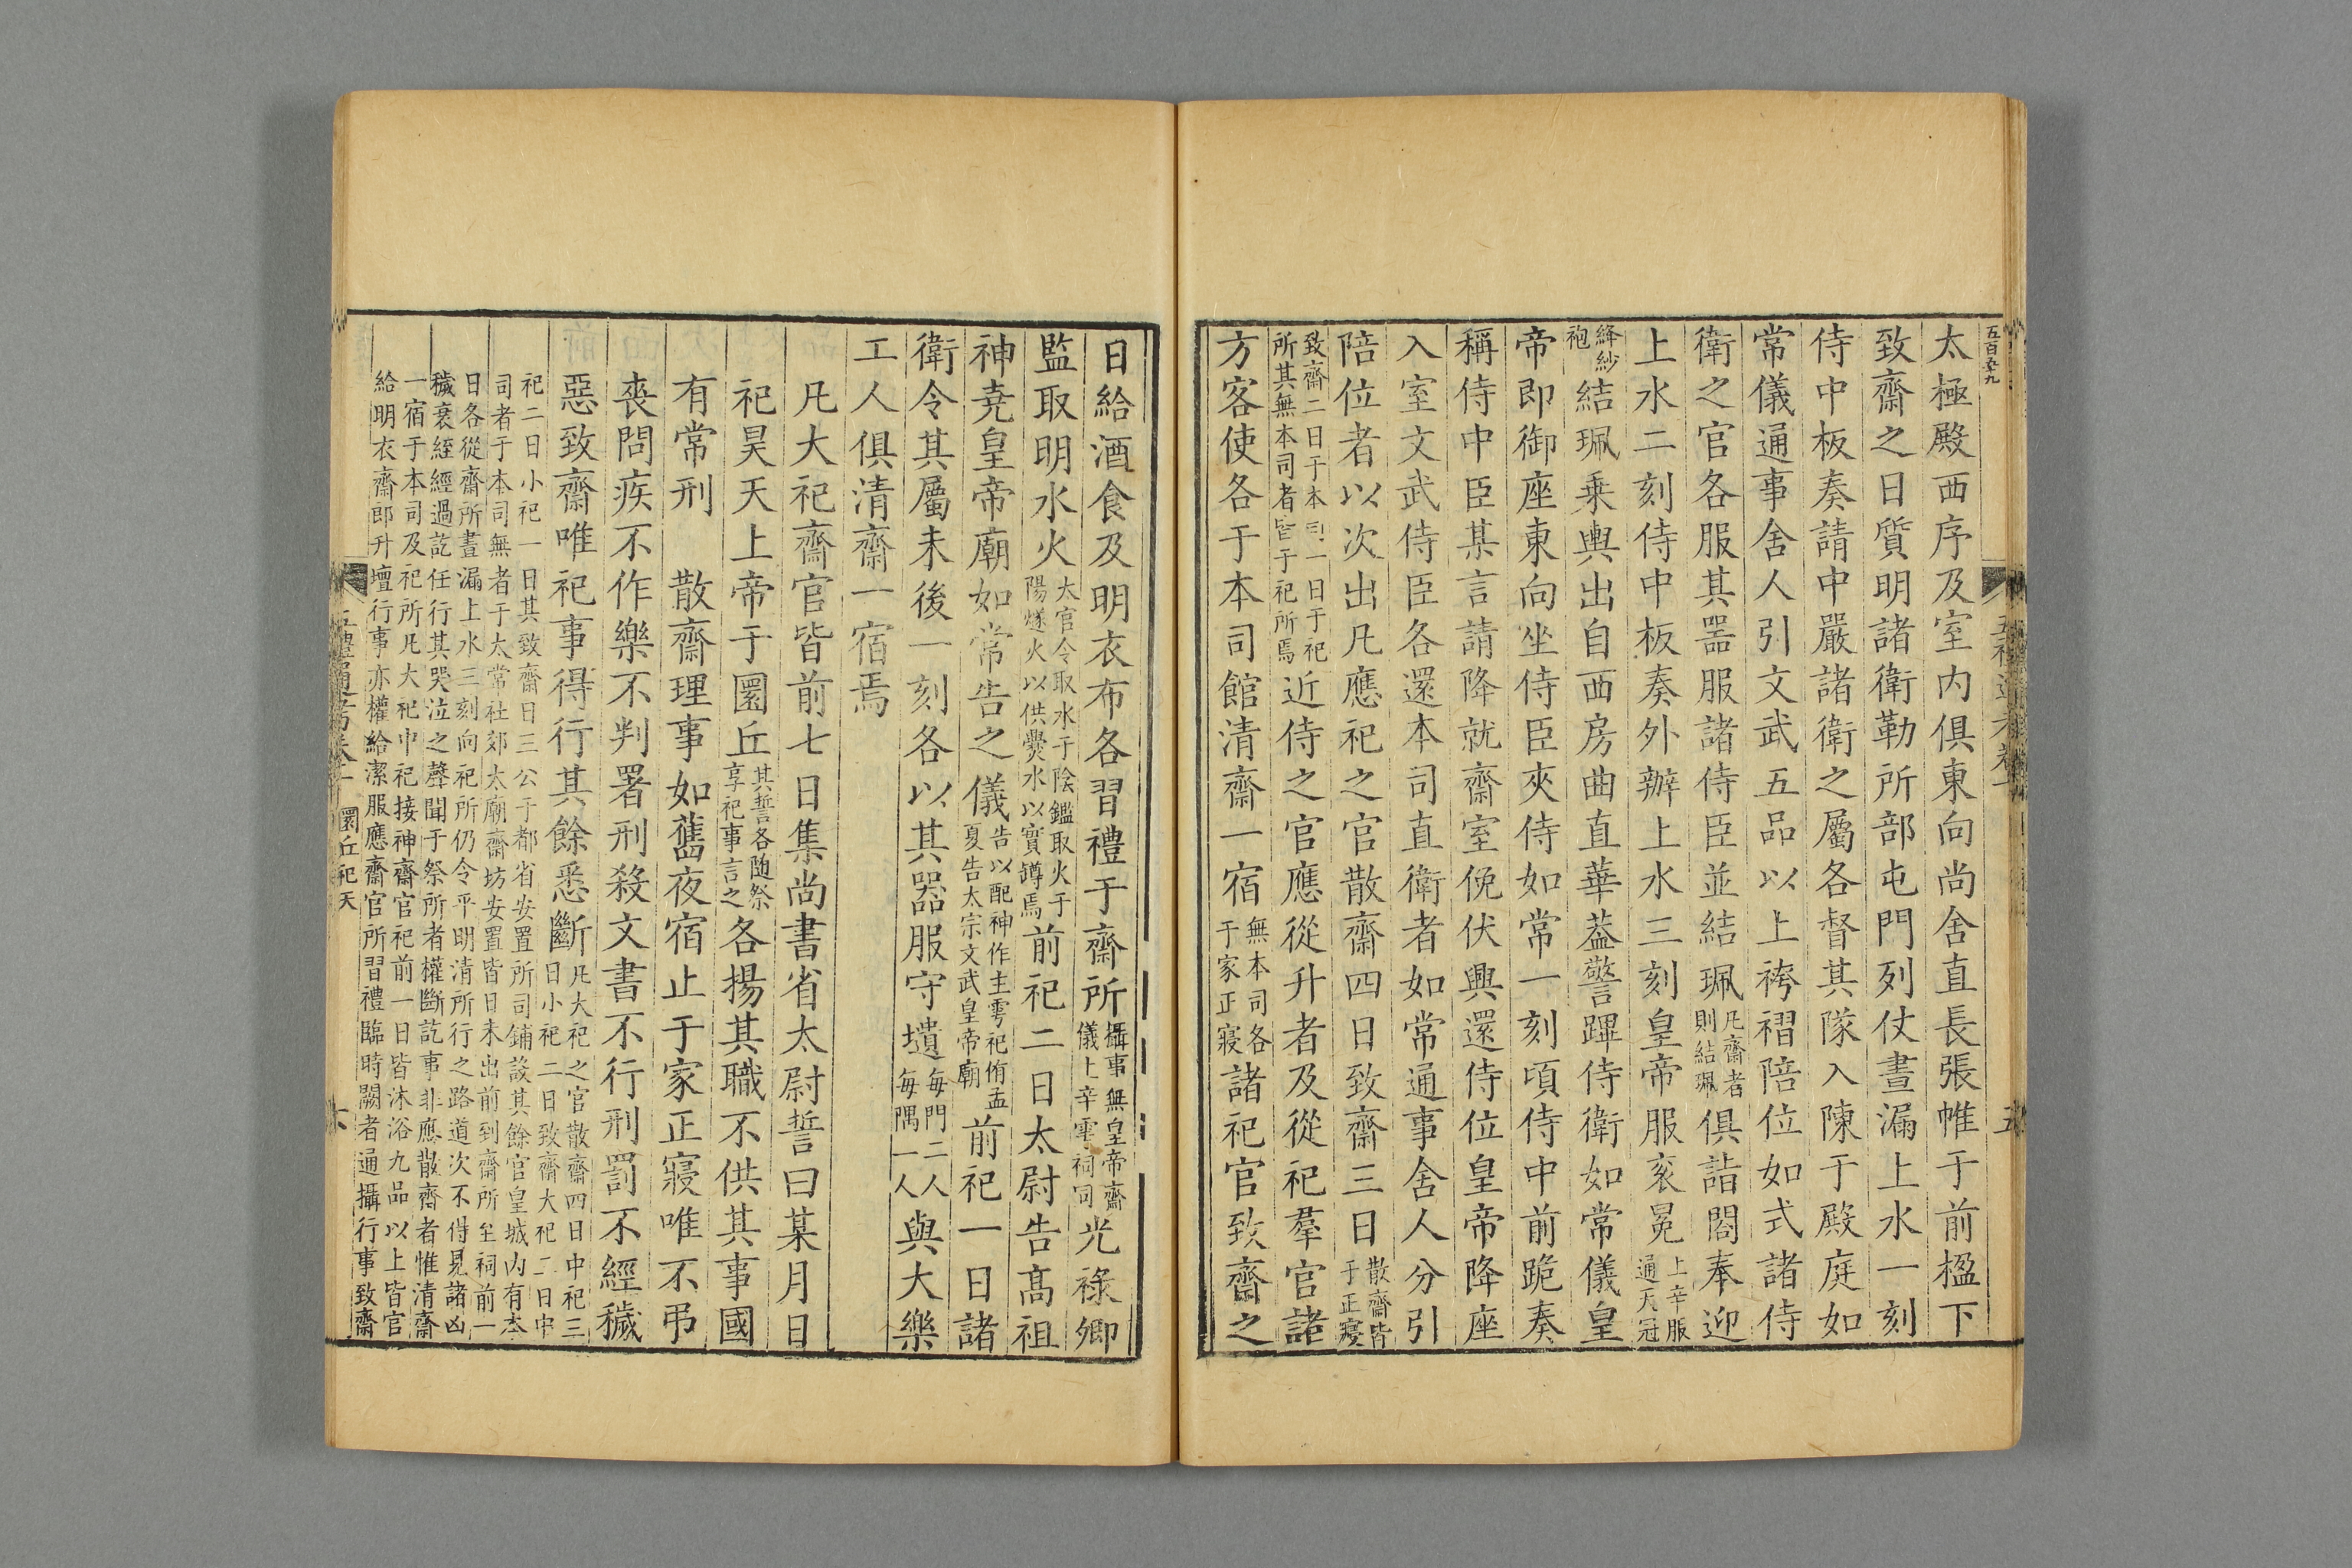 五百五九
太極殿西序及室内俱東向尚舍直長張帷于前楹下
致齋之日質明諸衛勒所部屯門列仗晝漏上水一刻
侍中板奏請中嚴諸衛之屬各督其隊入陳于殿庭如
常儀通事舍人引文武五品以上袴褶陪位如式諸侍
衛之官各服其噐服諸侍臣並結珮凡齋者則結珮俱詣閤奉迎
上水二刻侍中板奏外辦上水三刻皇帝服衮冕上辛服通天冠
絳紗袍結珮乗輿出自西房曲直華葢警蹕侍衛如常儀皇
帝即御座東向坐侍臣夾侍如常一刻頃侍中前跪奏
稱侍中臣某言請降就齋室俛伏興還侍位皇帝降座
入室文武侍臣各還本司直衛者如常通事舍人分引
陪位者以次出凡應祀之官散齋四日致齋三日散齋皆于正寢
致齋二日于本司一日于祀所其無本司者皆于祀所焉近侍之官應從升者及從祀羣官諸
方客使各于本司館清齋一宿無本司各于家正寢諸祀官致齋之
日給酒食及明衣布各習禮于齋所攝事無皇帝齋儀上辛雩祠同光祿卿
監取明水火太官令取水于陰鑑取火于陽燧火以供爨水以實罇焉前祀二日太尉告髙祖
神堯皇帝廟如常告之儀告以配神作主雩祀侑五夏告太宗文武皇帝廟前祀一日諸
衛令其屬未後一刻各以其噐服守壝每門二人每隅一人與大樂
工人俱清齋一宿焉
凡大祀齋官皆前七日集尚書省太尉誓曰某月日
祀昊天上帝于圜丘其誓各随祭享祀事言之各揚其職不供其事國
有常刑 散齋理事如舊夜宿止于家正寢唯不弔
喪問疾不作樂不判署刑殺文書不行刑罰不經穢
惡致齋唯祀事得行其餘悉斷凡大祀之官散齋四日中祀三日小祀二日致齋大祀二日中
祀二日小祀一日其致齋日三公于都省安置所司鋪設其餘官皇城内有本
司者于本司無者于太常社郊太廟齋坊安置皆日未出前到齋所至祠前一
日各從齋所晝漏上水三刻向祀所仍令平明清所行之路道次不得見諸凶
穢衰絰經過訖任行其哭泣之聲聞于祭所者權斷訖事非應散齋者惟清齋
一宿于本司及祀所凡大祀中祀接神齋官祀前一日皆沐浴九品以上皆官
給明衣齋郎升壇行事亦權給潔服應齋官所習禮臨時闕者通攝行事致齋
圜丘祀天